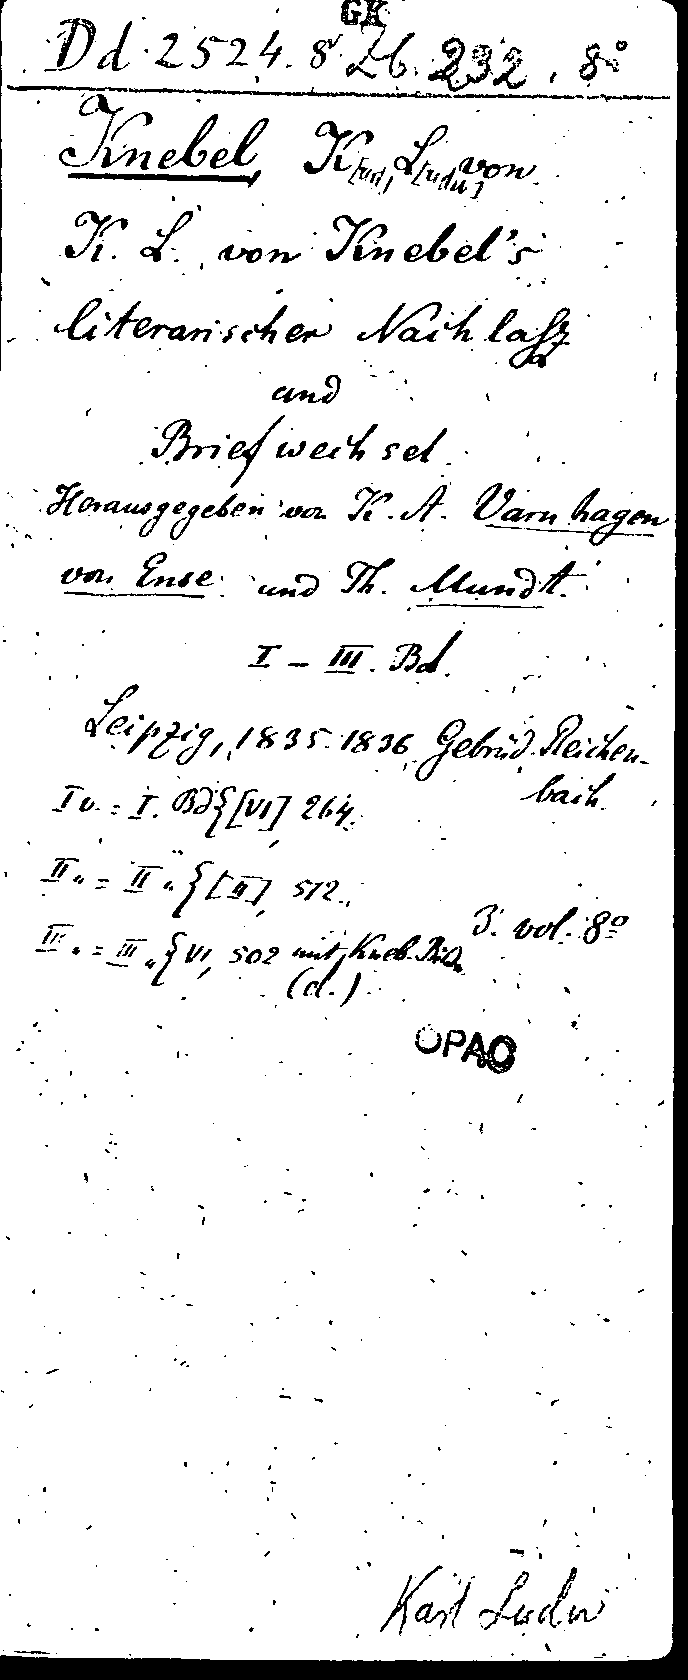 GK
Dd. 2524. 8° Zb. 232. 8°
Knebel, K[arl] L[udw] von
K. L. von Knebel's
literarischer Nachlaß
und
Briefwechsel
Herausgegeben von K. A. Varnhagen
von Ense und Th. Mundt.
I – III. Bd.
Leipzig, 1835-1836 Gebrüd. Reichen-
bach
I v. = I. Bd {[VI] 264.
II " = II " {[II], 512.
III " = III " {VI, 502 mit Kneb. Bild
(d.)
3. vol. 8°
OPAC
Karl Ludw